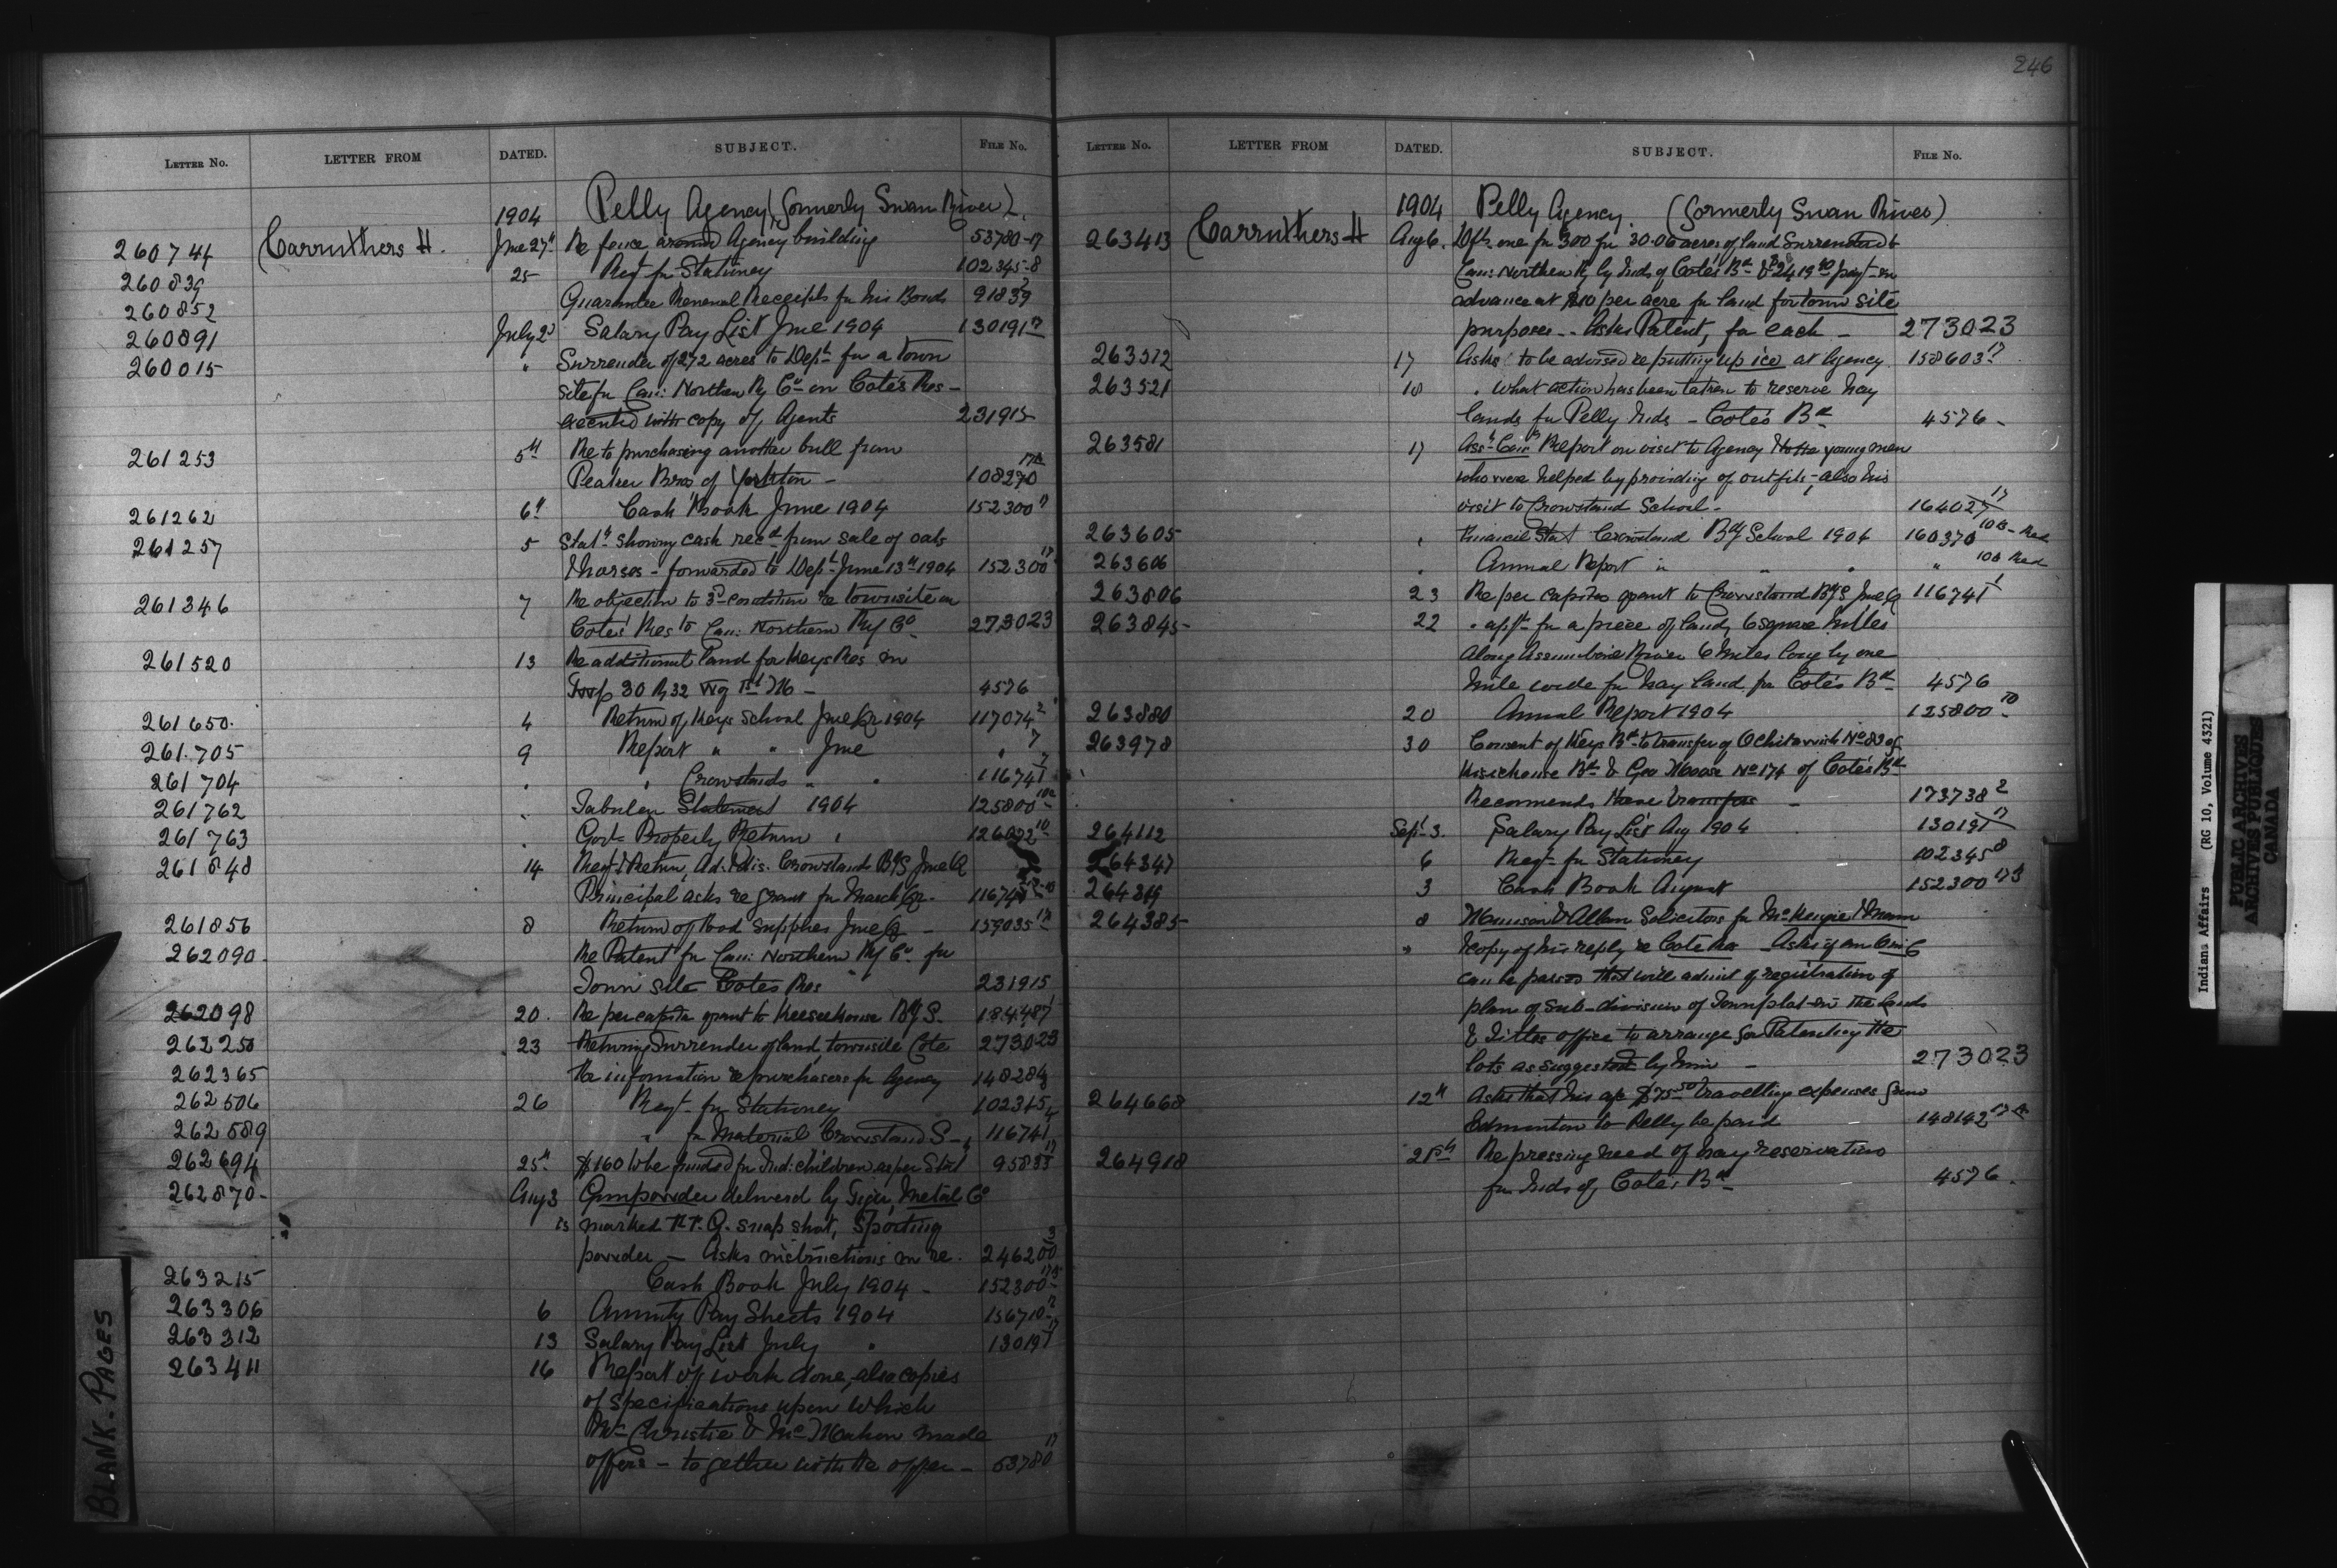 246
LETTER No. LETTER FROM DATED. SUBJECT. FILE No.
1904 Pelly Agency (formerly Swan River).
260744 Carruthers H. Jne 27th Re fence around Agency building 53780-17
260839 25 Reqt for Stationey 102345-8
260852 Guarantee Renewal Receipts for his Bonds 91839
260891 July 2d Salary Pay List Jne 1904 130191 17
260015 " Surrender of 272 acres to Dept for a town
site for Can: Northern Ry Co on Cote's Res -
executed with copy of Agents 231915
261253 5th Re to purchasing another bull from
Peaker Bros of Yorkton - 108270
261262 6th Cash Book June 1904 152300 17
261257 5 Statt showing cash recd from sale of oats
& horses - forwarded to Dept June 13th 1904 152300 17
261346 7 Re objection to 3d condition re townsite on
Cotes' Res to Can: Northern Ry Co 273023
261520 13 Re additional land for Keys Res in
Twp 30 R 32 W 1st M - 4576
261650. 4 Return of Keys School Jne Qr 1904 117074 2
261.705 9 Report " " Jne " 7
261704 " " Crowstands " " 116741 7
261762 " Tabular Statement 1904 125800
261763 " Govt Property Return " 126022 10
261848 14 Reqt & Return, Ad. & Dis. Crowstand BgS Jne Q
Principal asks re grant for March Qr.
261856 8 Return of Food Supplies Jne Q - 159035 17
262090. Re Patent for Can: Northern Ry Co for
Town site Cotes Res 231915
262098 20. Re per capita grant to Keeseehouse Bg S. 184487
262250 23 Returning Surrender of land, townsite Cote 273023
262365 Re information re purchasers for Agency 148284
262506 26 Reqt for Stationey 102345
262589 " for Material Crowstand S - 116741
262694 25th $160 to be funded for Ind: children as per Stat 95833 17
262870- Aug 3 Gunpowder delivered by Metal Co
is marked snap shot, Sporting
powder - Asks instructions in re. 246200 3
263215 Cash Book July 1904 - 152300 17
263306 6 Annuity Pay Sheets 1904 156710
263312 13 Salary Pay List July " 130191 17
263411 16 Report of work done, also copies
of specifications upon which
Mr Christie & McMahon made
offers - together with the offer - 53780 17
LETTER No. LETTER FROM DATED. SUBJECT. FILE No.
1904 Pelly Agency. (formerly Swan River)
263413 Carruthers H Aug 6. Dfts one for 300 for 30.06 acres of land Surrendered to
Can: Northern Ry by Inds of Cote's Bd & payt in
advance at $10 per acre for land for town site
purposes - Asks Patent, for each - 273023
263512 17 Asks to be advised re putting up ice at Agency 158603 17
263521 18 " what action has been taken to reserve hay
lands for Pelly Inds - Cote's Bd 4576 -
263581 17 Asst Comr Report on visit to Agency & to the young men
who were helped by providing of outfits, also his
visit to Crowstand School - 164027 17
263605 " Financial Stat Crowstand Bdg School 1904 160370
263606 " Annual Report " " " "
263806 23 Re per capita grant to Crowstand BgS Jne Q 116741 1
263845 22 " applt for a piece of land, 6 square miles
along Assiniboine River 6 miles long by one
mile wide for hay land for Cote's Bd 4576
263880 20 Annual Report 1904 125800
263978 30 Consent of Keys Bd to transfer of Ochitawink No 83 of
Kisickouse Bd & Geo Moose No 174 of Cote's Bd
Recommends these transfers - 173738 2
264112 Sept 3. Salary Pay List Aug 1904 130191 17
264347 6 Reqt for Stationey 102345 8
264349 3 Cash Book August 152300
264385 8 & Allan Solicitors for McKenzie & Mann
" & copy of his reply re Cote Res - Asks if an
can be passed that will admit of registration of
plan of sub-division of Townplot in the Lands
& Titles office to arrange for Patenting the
lots as suggested by him - 273023
264668 12th Asks that his a/c $75.50 travelling expenses from
Edmonton to Pelly be paid 148142
264918 21st Re pressing need of hay reservation
for Inds of Cote's Bd 4576.
BLANK - PAGES
Indians Affairs (RG 10, Volume 4321)
PUBLIC ARCHIVES
ARCHIVES PUBLIQUES
CANADA